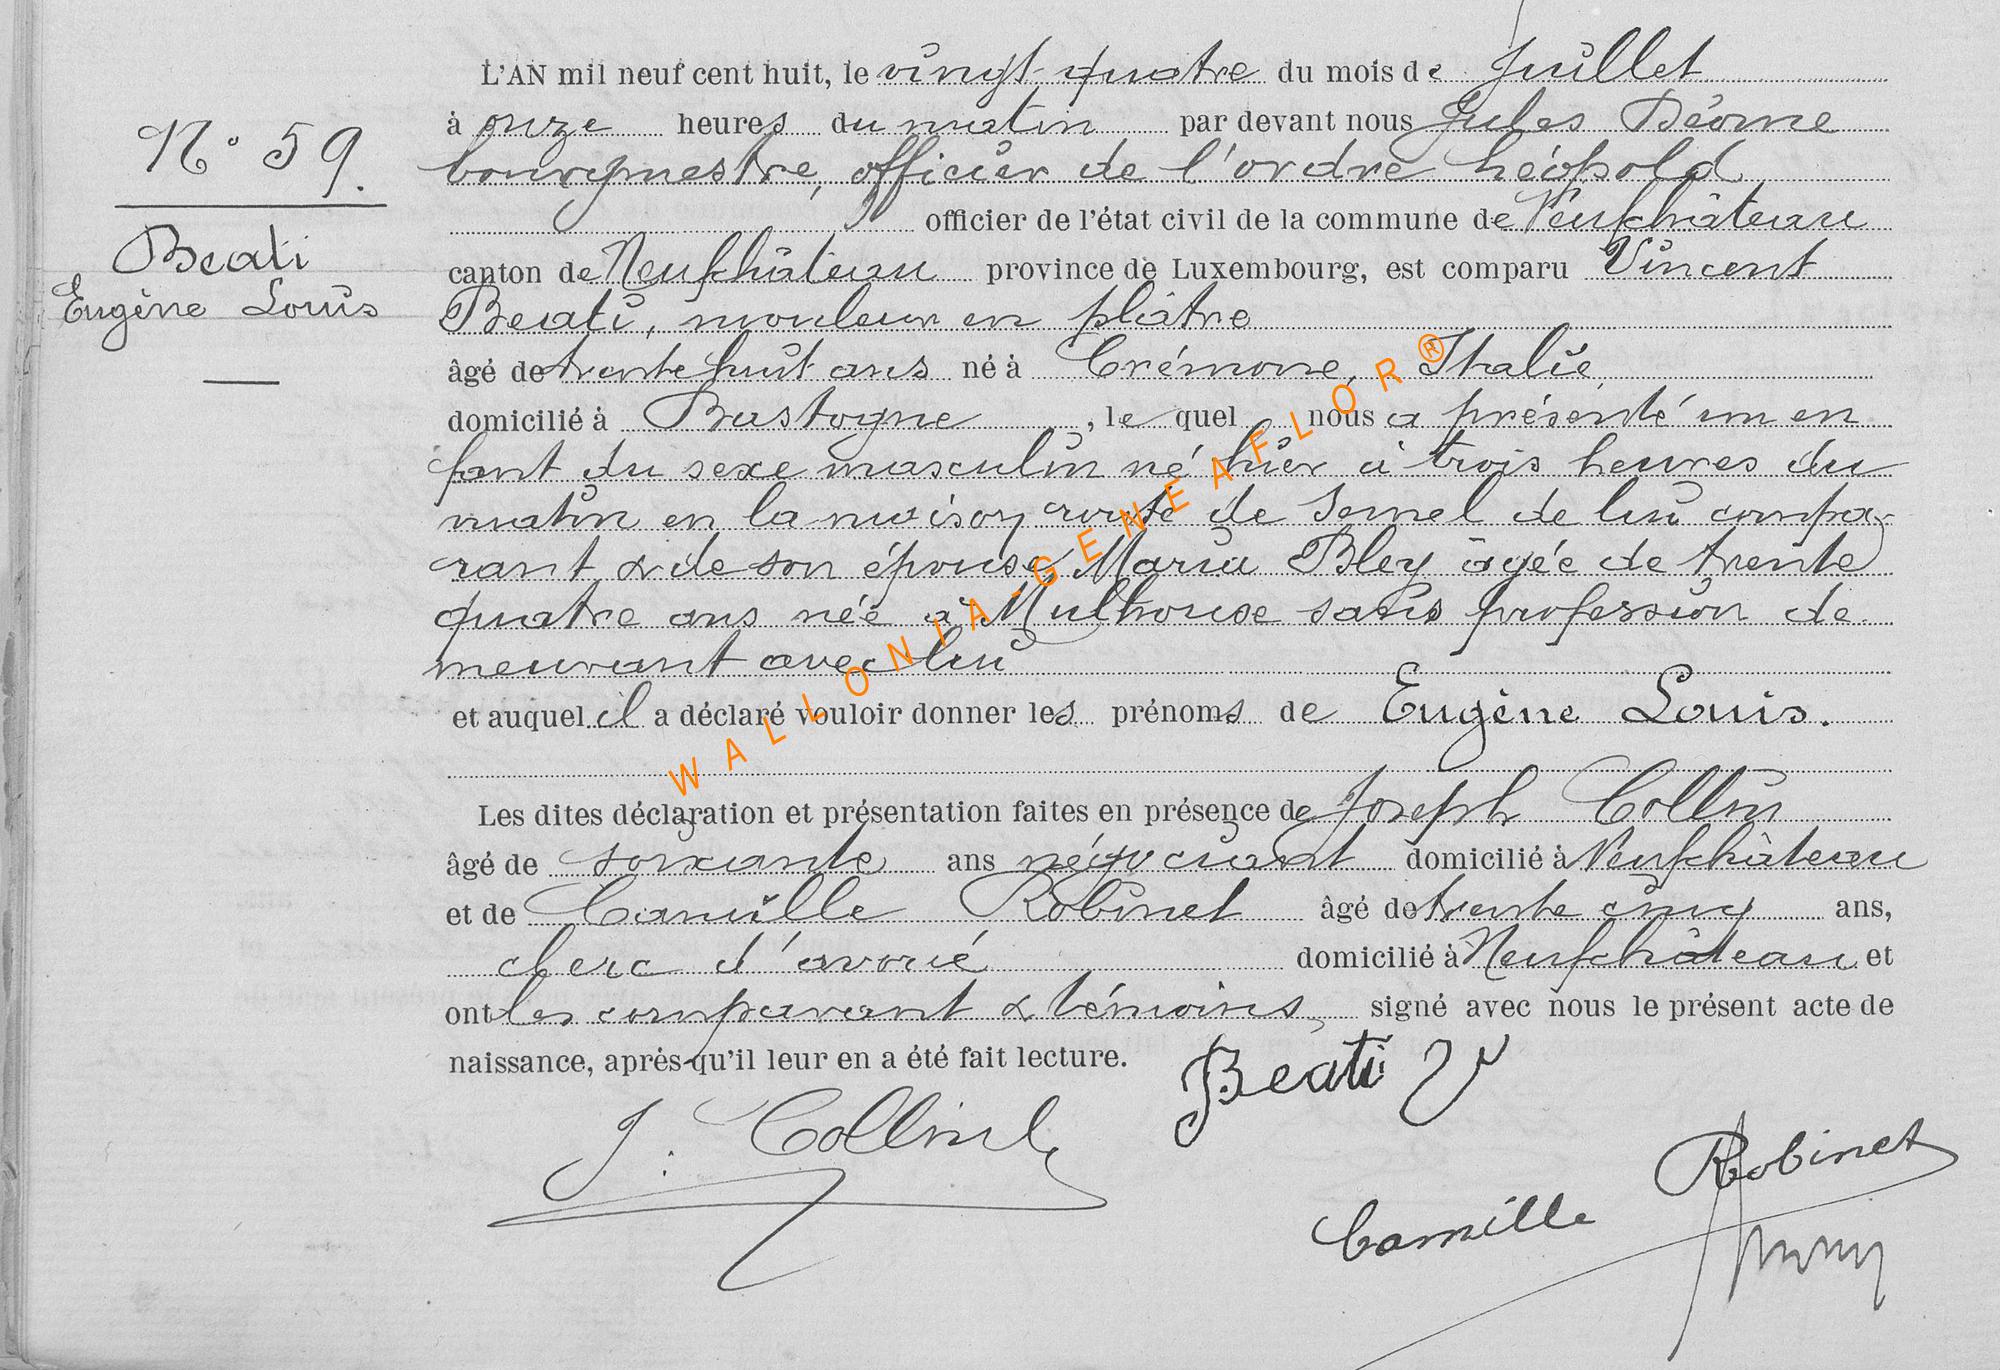 N° 59.
Beati
Eugène Louis
L'AN mil neuf cent huit, le vingt-quatre du mois de Juillet
à onze heures du matin par devant nous Jules
bourgmestre, officier de l'ordre Léopold
officier de l'état civil de la commune de Neufchâteau
canton de Neufchâteau province de Luxembourg, est comparu Vincent
Beati, mouleur en plâtre
âgé de trente huit ans né à Crémone, Italie,
domicilié à Bastogne, le quel nous a présenté un en
fant du sexe masculin né hier à trois heures du
matin en la maison route de Semel de lui compa-
rant & de son épouse Maria Bley âgée de trente
quatre ans née à Mulhouse sans profession de
meurant avec lui
et auquel il a déclaré vouloir donner les prénoms de Eugène Louis.
Les dites déclaration et présentation faites en présence de Joseph Collin
âgé de soixante ans négociant domicilié à Neufchâteau
et de Camille Robinet âgé de trente cinq ans,
clerc d'avoué domicilié à Neufchâteau et
ont les comparant & témoins, signé avec nous le présent acte de
naissance, après qu'il leur en a été fait lecture.
Beati V
J. Collin
Camille Robinet
WALLONIA-GENEAFLOR®